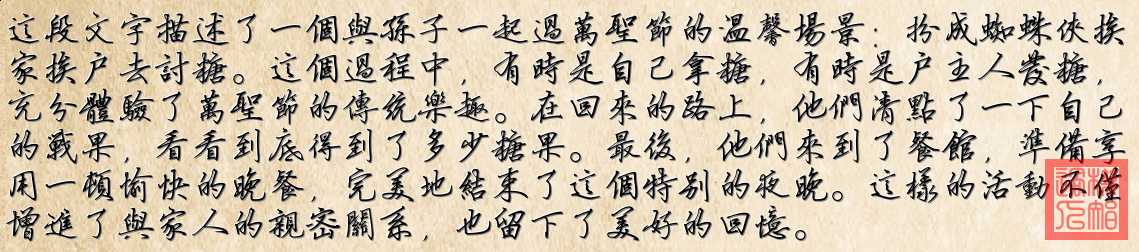 這段文字描述了一個與孫子一起過萬聖節的溫馨場景：扮成蜘蛛俠挨
家挨户去討糖。這個過程中，有時是自己拿糖，有時是户主人發糖，
充分體驗了萬聖節的傳統樂趣。在回來的路上，他們清點了一下自己
的戰果，看看到底得到了多少糖果。最後，他們來到了餐館，準備享
用一頓愉快的晚餐，完美地結束了這個特别的夜晚。這樣的活動不僅
增進了與家人的親密關系，也留下了美好的回憶。